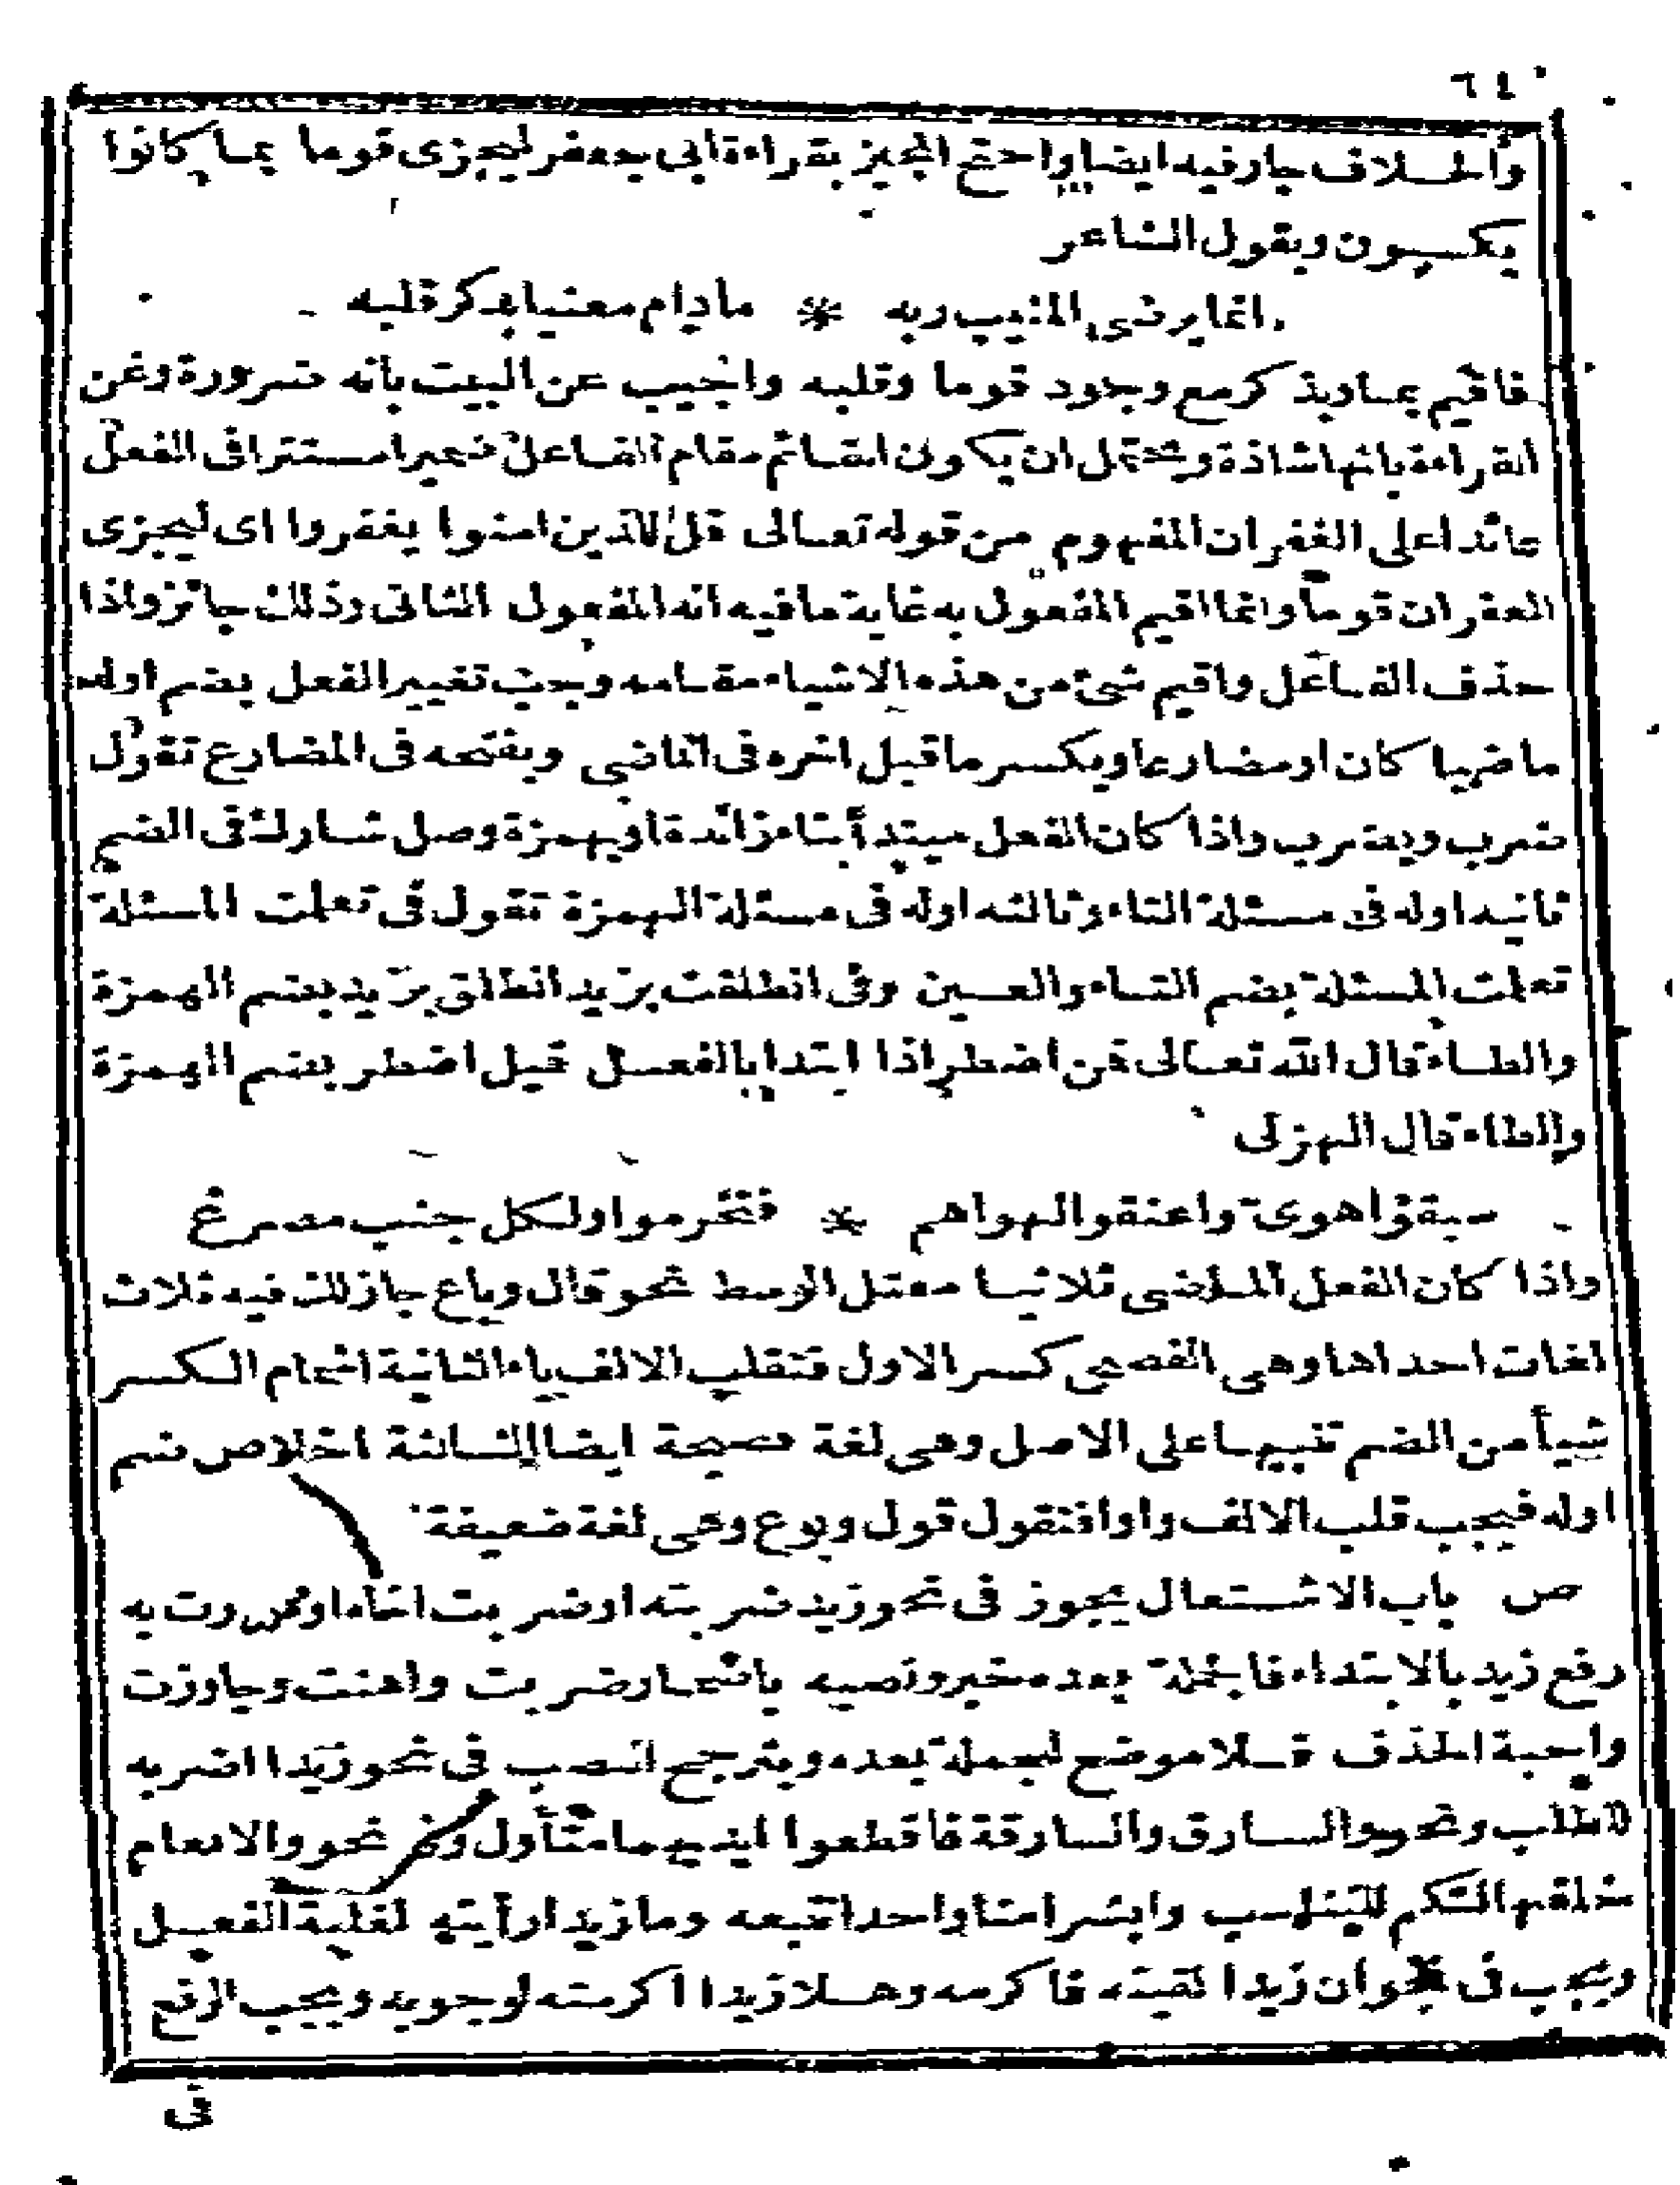 ٦٤
والخلاف جار فيه ايضا واحتج المجيز بقراءة ابى جعفر ليجزى قوما بما كانوا
يكسبون وبقول الشاعر
انما يرضى المنيب ربه * مادام معنيا بذكر قلبه
فاقيم بما وبذكر مع وجود قوما وقلبه واجيب عن البيت بانه ضرورة وعن
القراءة بانها شاذة ويحتمل ان يكون القائم مقام الفاعل ضميرا مستترا فى الفعل
عائدا على الغفران المفهوم من قوله تعالى قل للذين امنوا يغفروا اى ليجزى
الغفران قوما وانما اقيم المفعول به غاية ما فيه انه المفعول الثانى وذلك جائز واذا
حذف الفاعل واقيم شئ من هذه الاشياء مقامه وجب تغيير الفعل بضم اوله
ماضيا كان او مضارعا وبكسر ما قبل اخره فى الماضى وبفتحه فى المضارع تقول
ضرب ويضرب واذا كان الفعل مبتدأ بتاء زائدة او بهمزة وصل شارك فى الضم
ثانيه اوله فى مسئلة التاء وثالثه اوله فى مسئلة الهمزة تقول فى تعلمت المسئلة
تعلمت المسئلة بضم التاء والعين وفى انطلقت بزيد انطلق بزيد بضم الهمزة
والطاء قال الله تعالى فمن اضطر اذا ابتدا بالفعل قيل اضطر بضم الهمزة
والطاء قال الهزلى
سبقوا هوى واعنقوا لهواهم * فتخرموا ولكل جنب مصرع
واذا كان الفعل الماضى ثلاثيا معتل الوسط نحو قال وباع جاز لك فيه ثلاث
لغات احداها وهى الفصحى كسر الاول فتقلب الالف ياء الثانية اشمام الكسر
شيأ من الضم تنبيها على الاصل وهى لغة فصيحة ايضا الثالثة اخلاص ضم
اوله فيجب قلب الالف واوا فتقول قول وبوع وهى لغة ضعيفة
ص باب الاشتغال يجوز فى نحو زيد ضربته او ضربت اخاه او مررت به
رفع زيد بالابتداء فالجملة بعده خبر ونصبه باضمار ضربت واهنت وجاوزت
واجبة الحذف فلا موضع للجملة بعده ويترجح النصب فى نحو زيدا اضربه
للطلب ونحو والسارق والسارقة فاقطعوا ايديهما متأول وفى نحو والانعام
خلقها لكم للتناسب وابشرا منا واحدا نتبعه وما زيدا رأيته لغلبة الفعل
ويجب فى نحو ان زيدا لقيته فاكرمه وهلا زيدا اكرمته لوجوبه ويجب الرفع
فى